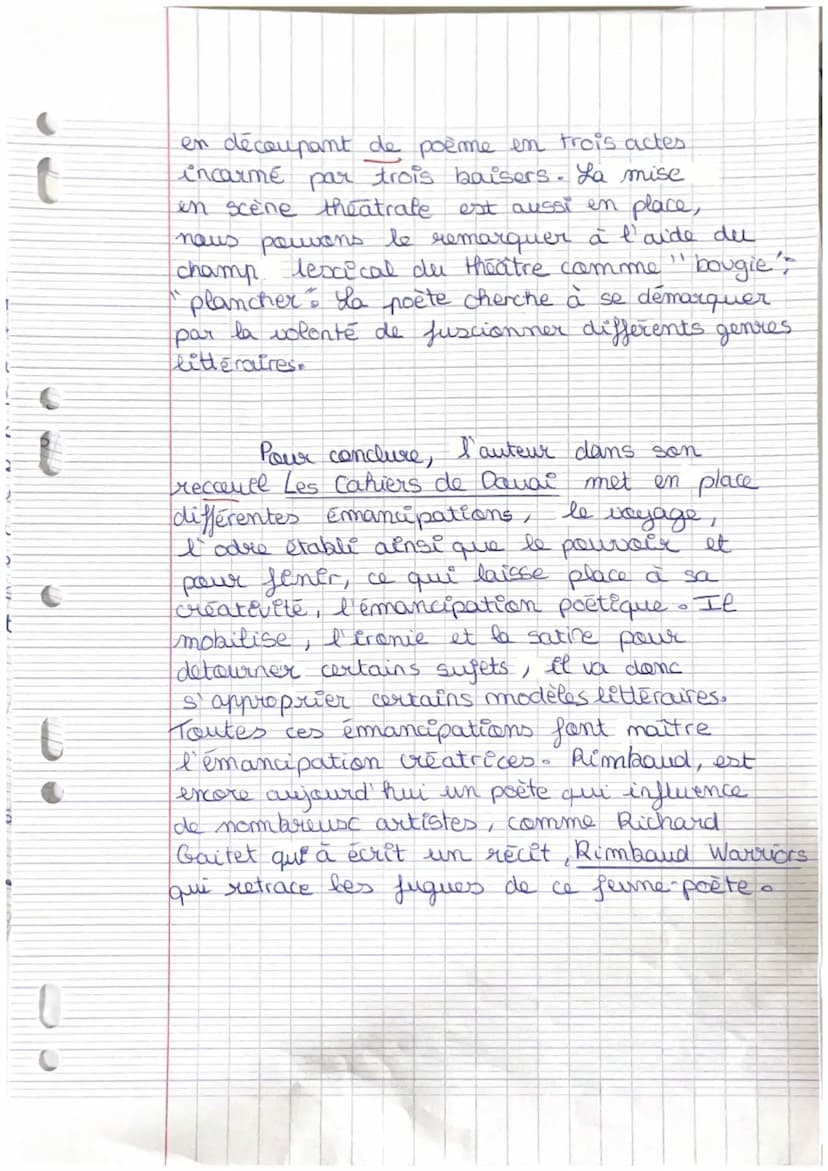 en découpant de poème en trois actes
incarné par trois baisers. La mise
en scène théâtrale est aussi en place,
nous pouvons le remarquer à l'aide du
champ lexical du théâtre comme "bougie";
"plancher". La poète cherche à se démarquer
par la volonté de fuscionner différents genres
littéraires.
Pour conclure, l'auteur dans son
recoeuil Les Cahiers de Douai met en place
différentes émancipations, le voyage,
l'odre établi ainsi que le pouvoir et
pour finir, ce qui laisse place à sa
créativité, l'émancipation poétique. Il
mobilise, l'ironie et la satire pour
detourner certains sujets, il va donc
s'approprier certains modèles littéraires.
Toutes ces émancipations font naître
l'émancipation créatrices. Rimbaud, est
encore aujourd'hui un poète qui influence
de nombreux artistes, comme Richard
Gaitet qui à écrit un récit, Rimbaud Warriors
qui retrace les fugues de ce jeune-poète.